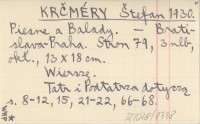 KRČMÉRY Štefan 1930.
Piesne a Balady. — Brati-
slava-Praha. Stron 79, 3 nlb,
okł., 13 x 18 cm.
Wiersze.
Tatr i Podtatrza dotyczą
s. 8-12, 15, 21-22, 66-68.